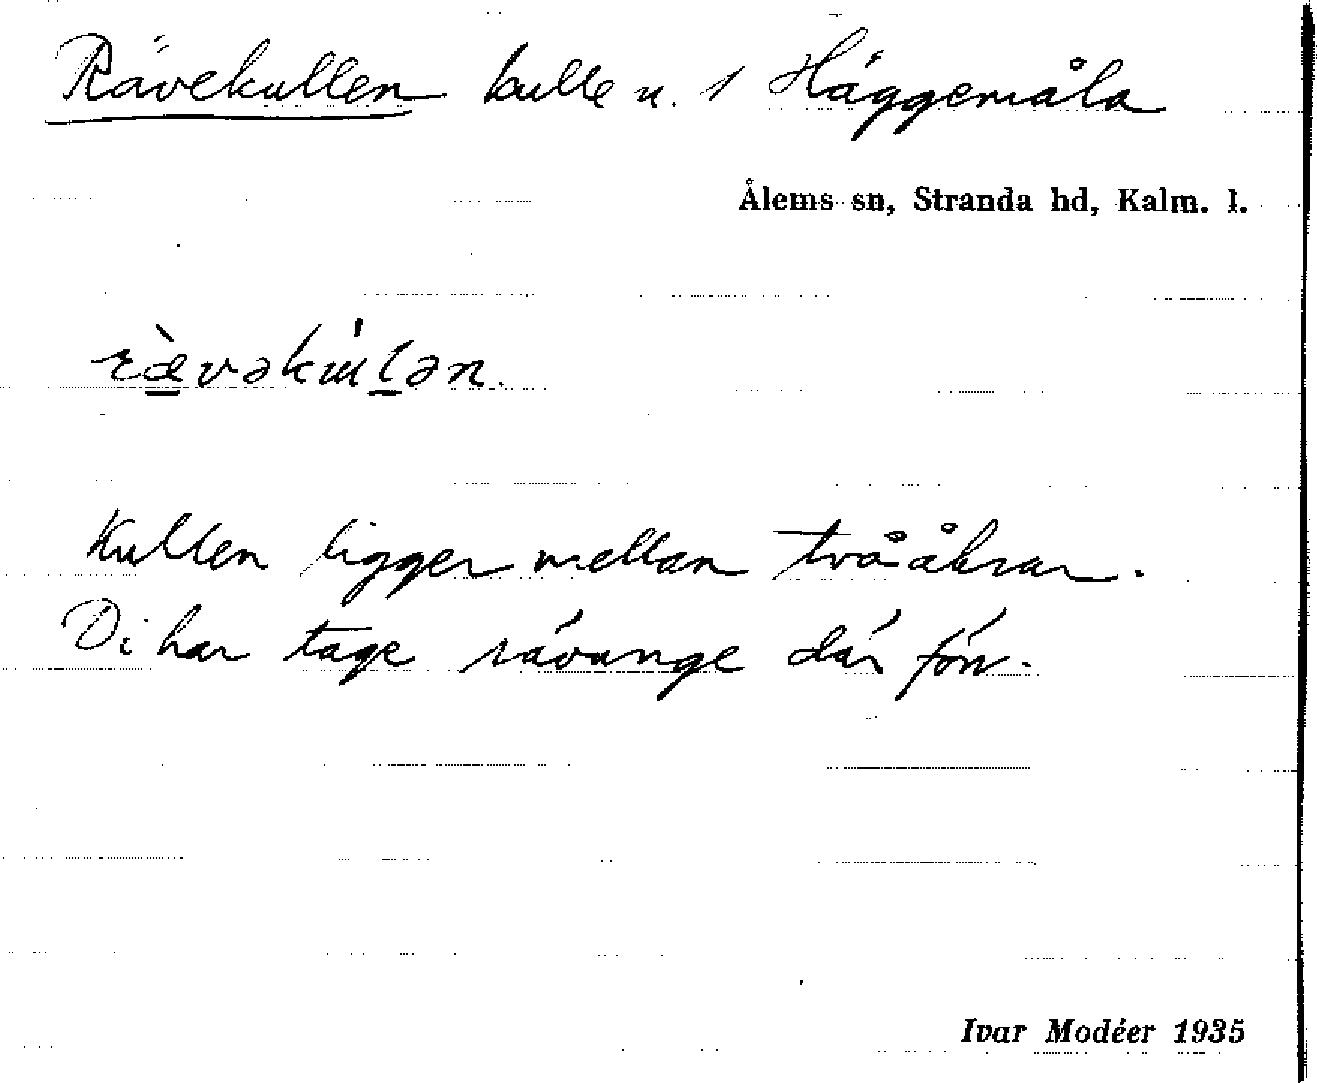 Rävekullen kulle u. 1 Häggemåla
Ålems sn, Stranda hd, Kalm. l.
rævəkɯlən.
Kullen ligger mellan två åkrar.
Di har tage rävunge där förr.
Ivar Modéer 1935